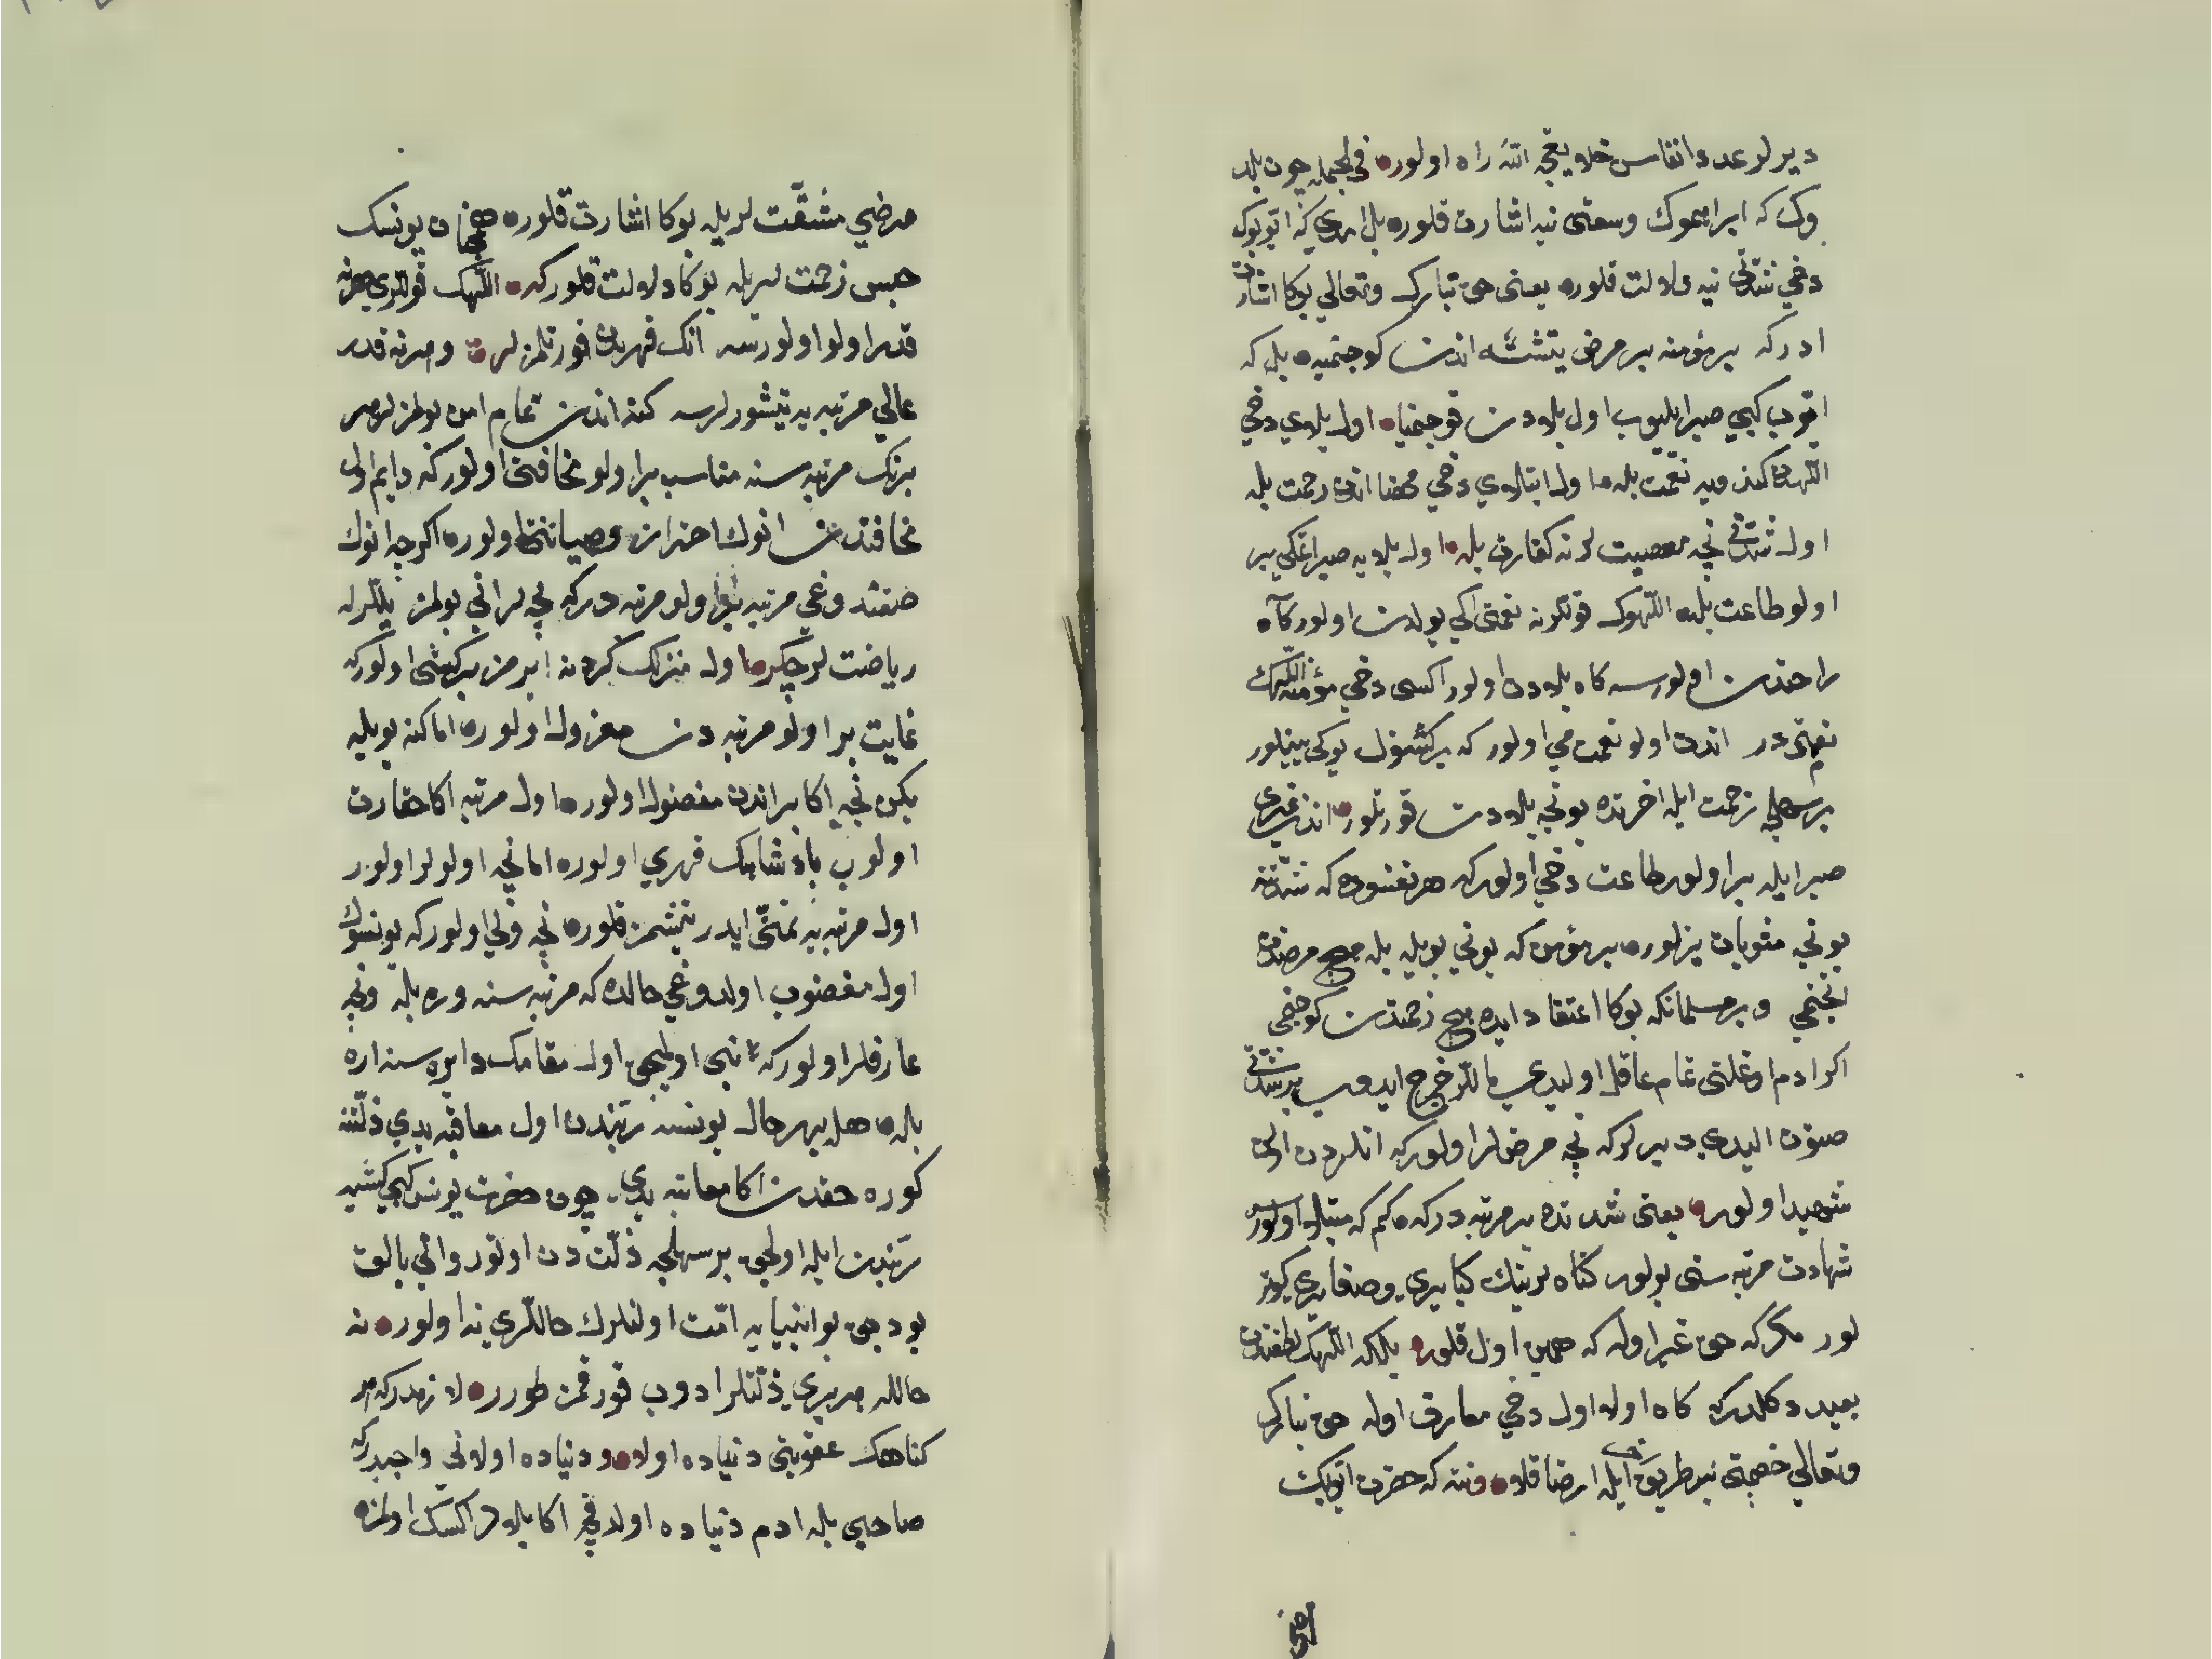 ديرلر عدد انفاس خلايقجه الله راه اولور في الجمله چون بلد
وك كه ابراهموك وسعتى نيه اشارت قلور بل امدي كه ايّوبوك
دخي شدّتى نيه دلالت قلور يعنى حق تبارك وتعالي بوكا اشارت
ادر كه بر مؤمنه بر مرض يتشسه اندن كوجنميه بل كه
ايّوب كبي صبر ايليوب اول بلادن قوجنميا اول بلاي دخي
اللّهدن كندويه نعمت بله اول ابتلاوي دخي محضا اندن رحمت بله
اول شدّتى نچه معصيت لرنه كفارت بله اول بلايه صبر اتمكي بر
اولو طاعت بله اللّهوك قوللرنه نعمتى ايكي يولدن اولور كاه
راحتدن اولورسه كاه بلادن اولور اكسى دخي مؤمنه اللّهك
نعمتى در اندن اولو نعمت مي اولور كه بر كشنوك يوكى يينلور
بر سهلجه زحمت ايله اخرتده بونجه بلادن قورتلور اندن غيري
صبر ايله بر اولو طاعت دخي اولور كه هر نفسنده كه شدّتنه
بونچه مثوبات يزلور بر مؤمن كه بوني بويله بله هيچ مرضدن
انجنمي وبر مسلمانكه بوكا اعتقاد ايده هيچ زحمتدن كوجنمي
اكر ادم اوغلنى تمام عاقل اوليدي ماللر خرج ايدوب بر شدّتى
صتون اليدي ديرلر كه نچه مرضلر اولور كه انلردن اولن
شهيد اولور يعنى شدّتده بر مرتبه در كه كم كه مبتلا اولورسه
شهادت مرتبه سنى بولور كناه لرينك كبايري وصغايري كيدر
لور مكر كه حق غير اوله كه همين اول قلور بلكه اللّهك لطفندن
بعيد دكلدر كه كاه اوله اول دخي معارف اوله حق تبارك
وتعالي خصمتى بر طريق ايله ارضا قلا ونته كه حضرت ايّوبك
مرضي مشقّت لريله بوكا اشارت قلور هم يونسك
حبس زحمت لريله بوكا دلالت قلور كه اللّهك قوللري هر نه
قدر اولو اولورسه انك قهرندن قورتلمزلر وهر نه قدر
عالي مرتبه يه يتشورلرسه كنه اندن تمام امن بولمزلر هر
برنك مرتبه سنه مناسب بر اولو مخافتى اولور كه دايم اول
مخافتدن انوك احترازى وصيانتى اولور اكرچه انوك
صنعتدوغي مرتبه بر اولو مرتبه در كه نچه لر اني بولمز ييللرله
رياضت لر چكر اول منزلك كردنه ايرمز بر كشى اولور كه
غايت بر اولو مرتبه دن معزول اولور اما كنه بويله
يكن نچه اكابر اندن مفضول اولور اول مرتبه اكا حقارت
اولوب پادشاهك قهري اولور اما نچه اولولر اولور
اول مرتبه يه تمنّى ايدر يتشمز قلور نچه ولي اولور كه يونسوك
اول مغضوب اولدوغي حالده كه مرتبه سنه وره بله ونچه
عارفلر اولور كه تا نبى اولمجى اول مقامك دايره سنه اره
بله هله بهر حال يونسه رتبتدن اول معاقبه يدي ذلّتنه
كوره حقدن اكا معاتبه يدي چون حضرت يونس كبي كشيه
رتبت ايله اولجى بر سهلجه ذلّت دن اوتور واني بالق
يودجى بو انبيايه امّت اولنلرك حاللري نه اولور نه
حالله هر بري ذلّتلر ادوب قورقمز طورر لا زمدر كه هر
كناهك عقوبتى دنياده اوله ودنياده اولاني واجبدر كه
صاحبي بله ادم دنياده اولدقچه اكا بلا در اكسك اولمزه